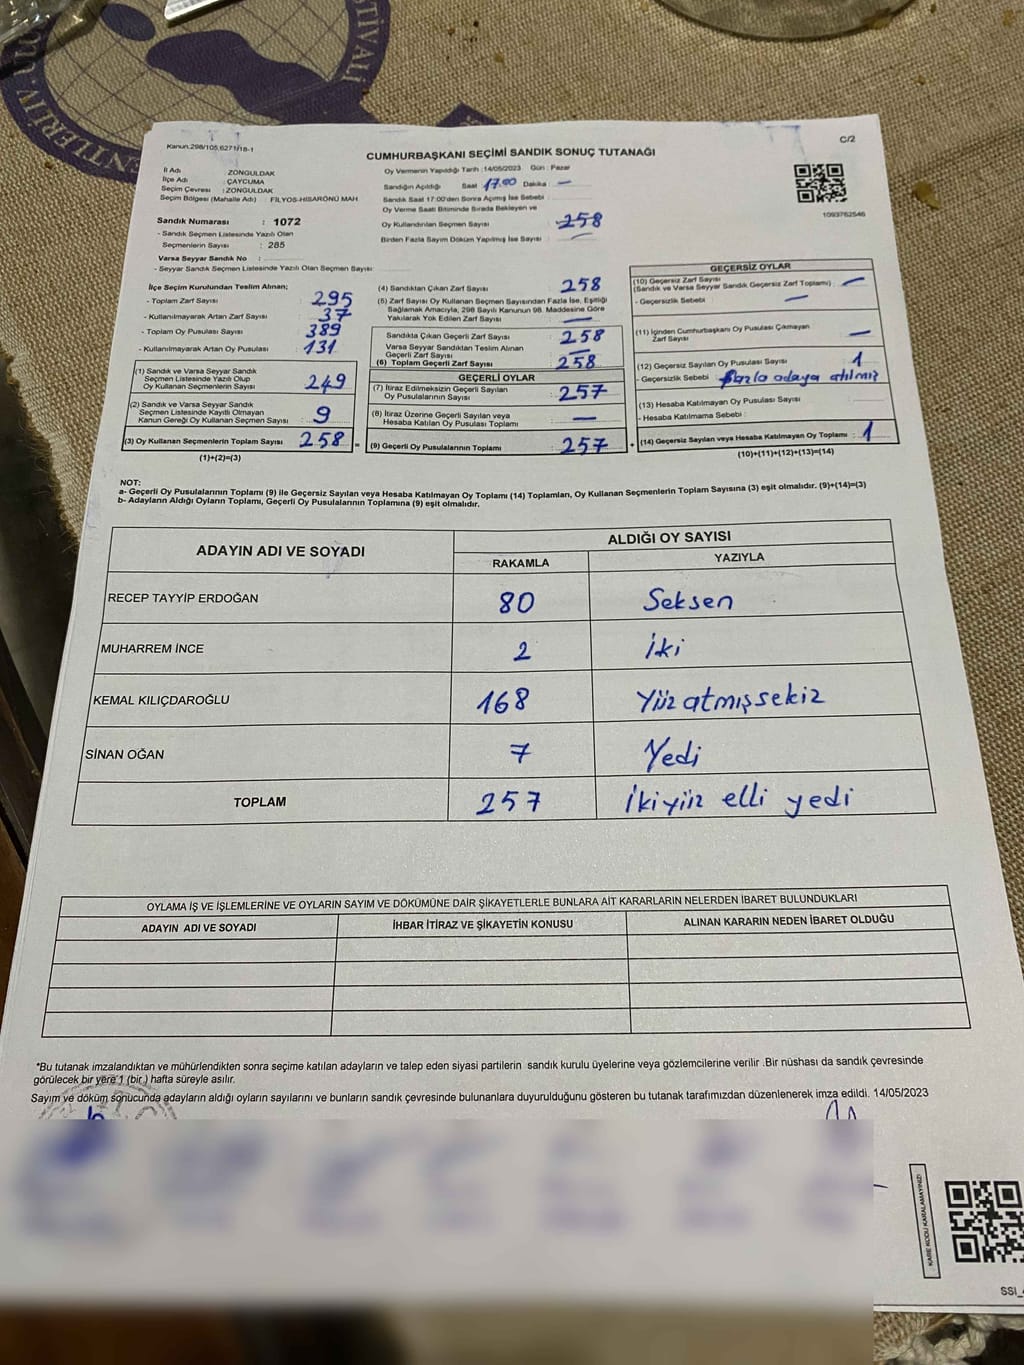 TİVALİ
ENTLERİ
Kanun.298/105,6271/18-1
C/2
CUMHURBAŞKANI SEÇİMİ SANDIK SONUÇ TUTANAĞI
İl Adı : ZONGULDAK
İlçe Adı : ÇAYCUMA
Seçim Çevresi : ZONGULDAK
Seçim Bölgesi (Mahalle Adı) : FİLYOS-HİSARÖNÜ MAH
Sandık Numarası : 1072
- Sandık Seçmen Listesinde Yazılı Olan
Seçmenlerin Sayısı : 285
Varsa Seyyar Sandık No :
- Seyyar Sandık Seçmen Listesinde Yazılı Olan Seçmen Sayısı:
Oy Vermenin Yapıldığı Tarih :14/05/2023 Gün : Pazar
Sandığın Açıldığı Saat 17.00 Dakika : —
Sandık Saat 17:00'den Sonra Açılmış İse Sebebi :
Oy Verme Saati Bitiminde Sırada Bekleyen ve
Oy Kullandırılan Seçmen Sayısı : 258
Birden Fazla Sayım Döküm Yapılmış İse Sayısı : —
1093762546
İlçe Seçim Kurulundan Teslim Alınan;
- Toplam Zarf Sayısı : 295
- Kullanılmayarak Artan Zarf Sayısı : 37
- Toplam Oy Pusulası Sayısı : 389
- Kullanılmayarak Artan Oy Pusulası : 131
(1) Sandık ve Varsa Seyyar Sandık
Seçmen Listesinde Yazılı Olup
Oy Kullanan Seçmenlerin Sayısı : 249
(2) Sandık ve Varsa Seyyar Sandık
Seçmen Listesinde Kayıtlı Olmayan
Kanun Gereği Oy Kullanan Seçmen Sayısı : 9
(3) Oy Kullanan Seçmenlerin Toplam Sayısı : 258 =
(1)+(2)=(3)
(4) Sandıktan Çıkan Zarf Sayısı : 258
(5) Zarf Sayısı Oy Kullanan Seçmen Sayısından Fazla İse, Eşitliği
Sağlamak Amacıyla, 298 Sayılı Kanunun 98. Maddesine Göre
Yakılarak Yok Edilen Zarf Sayısı : —
Sandıkta Çıkan Geçerli Zarf Sayısı : 258
Varsa Seyyar Sandıktan Teslim Alınan
Geçerli Zarf Sayısı : —
(6) Toplam Geçerli Zarf Sayısı : 258
GEÇERLİ OYLAR
(7) İtiraz Edilmeksizin Geçerli Sayılan
Oy Pusulası Sayısı : 257
(8) İtiraz Üzerine Geçerli Sayılan veya
Hesaba Katılan Oy Pusulası Toplamı : —
(9) Geçerli Oy Pusulalarının Toplamı : 257 +
GEÇERSİZ OYLAR
(10) Geçersiz Zarf Sayısı
(Sandık ve Varsa Seyyar Sandık Geçersiz Zarf Toplamı) : —
- Geçersizlik Sebebi : —
(11) İçinden Cumhurbaşkanı Oy Pusulası Çıkmayan
Zarf Sayısı : —
(12) Geçersiz Sayılan Oy Pusulası Sayısı : 1
- Geçersizlik Sebebi : fazla adaya atılmış
(13) Hesaba Katılmayan Oy Pusulası Sayısı :
- Hesaba Katılmama Sebebi :
(14) Geçersiz Sayılan veya Hesaba Katılmayan Oy Toplamı : 1
(10)+(11)+(12)+(13)=(14)
NOT:
a- Geçerli Oy Pusulalarının Toplamı (9) ile Geçersiz Sayılan veya Hesaba Katılmayan Oy Toplamı (14) Toplamları, Oy Kullanan Seçmenlerin Toplam Sayısına (3) eşit olmalıdır. (9)+(14)=(3)
b- Adayların Aldığı Oyların Toplamı, Geçerli Oy Pusulalarının Toplamına (9) eşit olmalıdır.
ADAYIN ADI VE SOYADI
ALDIĞI OY SAYISI
RAKAMLA YAZIYLA
RECEP TAYYİP ERDOĞAN 80 Seksen
MUHARREM İNCE 2 İki
KEMAL KILIÇDAROĞLU 168 Yüz atmışsekiz
SİNAN OĞAN 7 Yedi
TOPLAM 257 İkiyüz elli yedi
OYLAMA İŞ VE İŞLEMLERİNE VE OYLARIN SAYIM VE DÖKÜMÜNE DAİR ŞİKAYETLERLE BUNLARA AİT KARARLARIN NELERDEN İBARET BULUNDUKLARI
ADAYIN ADI VE SOYADI İHBAR İTİRAZ VE ŞİKAYETİN KONUSU ALINAN KARARIN NEDEN İBARET OLDUĞU
*Bu tutanak imzalandıktan ve mühürlendikten sonra seçime katılan adayların ve talep eden siyasi partilerin sandık kurulu üyelerine veya gözlemcilerine verilir .Bir nüshası da sandık çevresinde
görülecek bir yere 1 (bir ) hafta süreyle asılır.
Sayım ve döküm sonucunda adayların aldığı oyların sayılarını ve bunların sandık çevresinde bulunanlara duyurulduğunu gösteren bu tutanak tarafımızdan düzenlenerek imza edildi. 14/05/2023
KARE KODU KARALAMAYINIZ!
SSI_